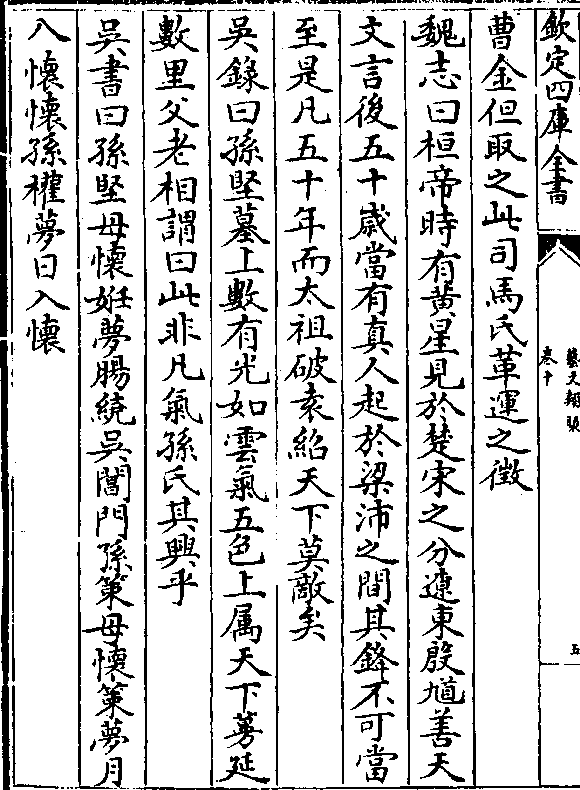 欽定四庫全書
藝文類聚
卷十
五
曹金但取之此司馬氏革運之徵
魏志曰桓帝時有黄星見於楚宋之分遼東殷馗善天
文言後五十歲當有真人起於梁沛之間其鋒不可當
至是凡五十年而太祖破袁紹天下莫敵矣
吳錄曰孫堅墓上數有光如雲氣五色上属天下蔓延
數里父老相謂曰此非凡氣孫氏其興乎
吳書曰孫堅母懷姙夢腸繞吳閶門孫策母懷策夢月
入懷懷孫權夢日入懷